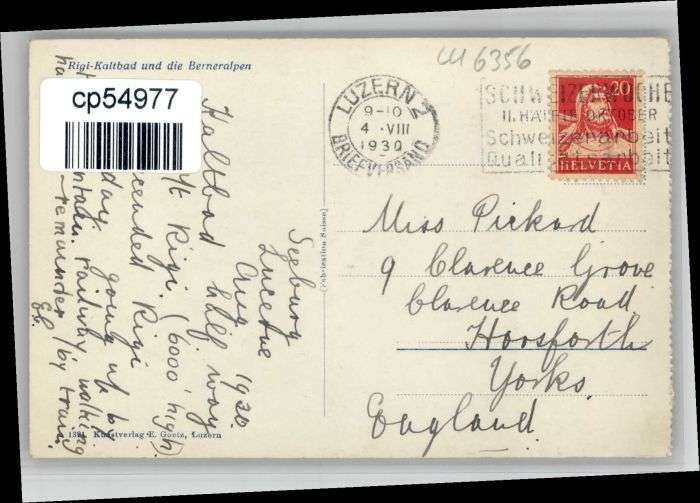 Rigi-Kaltbad und die Berneralpen
cp54977
cw 6356
LUZERN 2
9-10
4 · VIII
1930
BRIEFVERSAND
SCHWEIZERWOCHE
II. HÄLFTE OKTOBER
Schweizerarbeit
Qualitätsarbeit
20
HELVETIA
Seeburg
Lucerne
Aug 1930.
Kaltbad half way
Mt Rigi. (6000' high)
ascended Rigi
day going up by
mountain railway walking
remainder (by train
(Fabrication Suisse)
Miss Pickard
9 Clarence Grove
Clarence Road
Horsforth
Yorks.
England
1321 Kunstverlag E. Goetz, Luzern